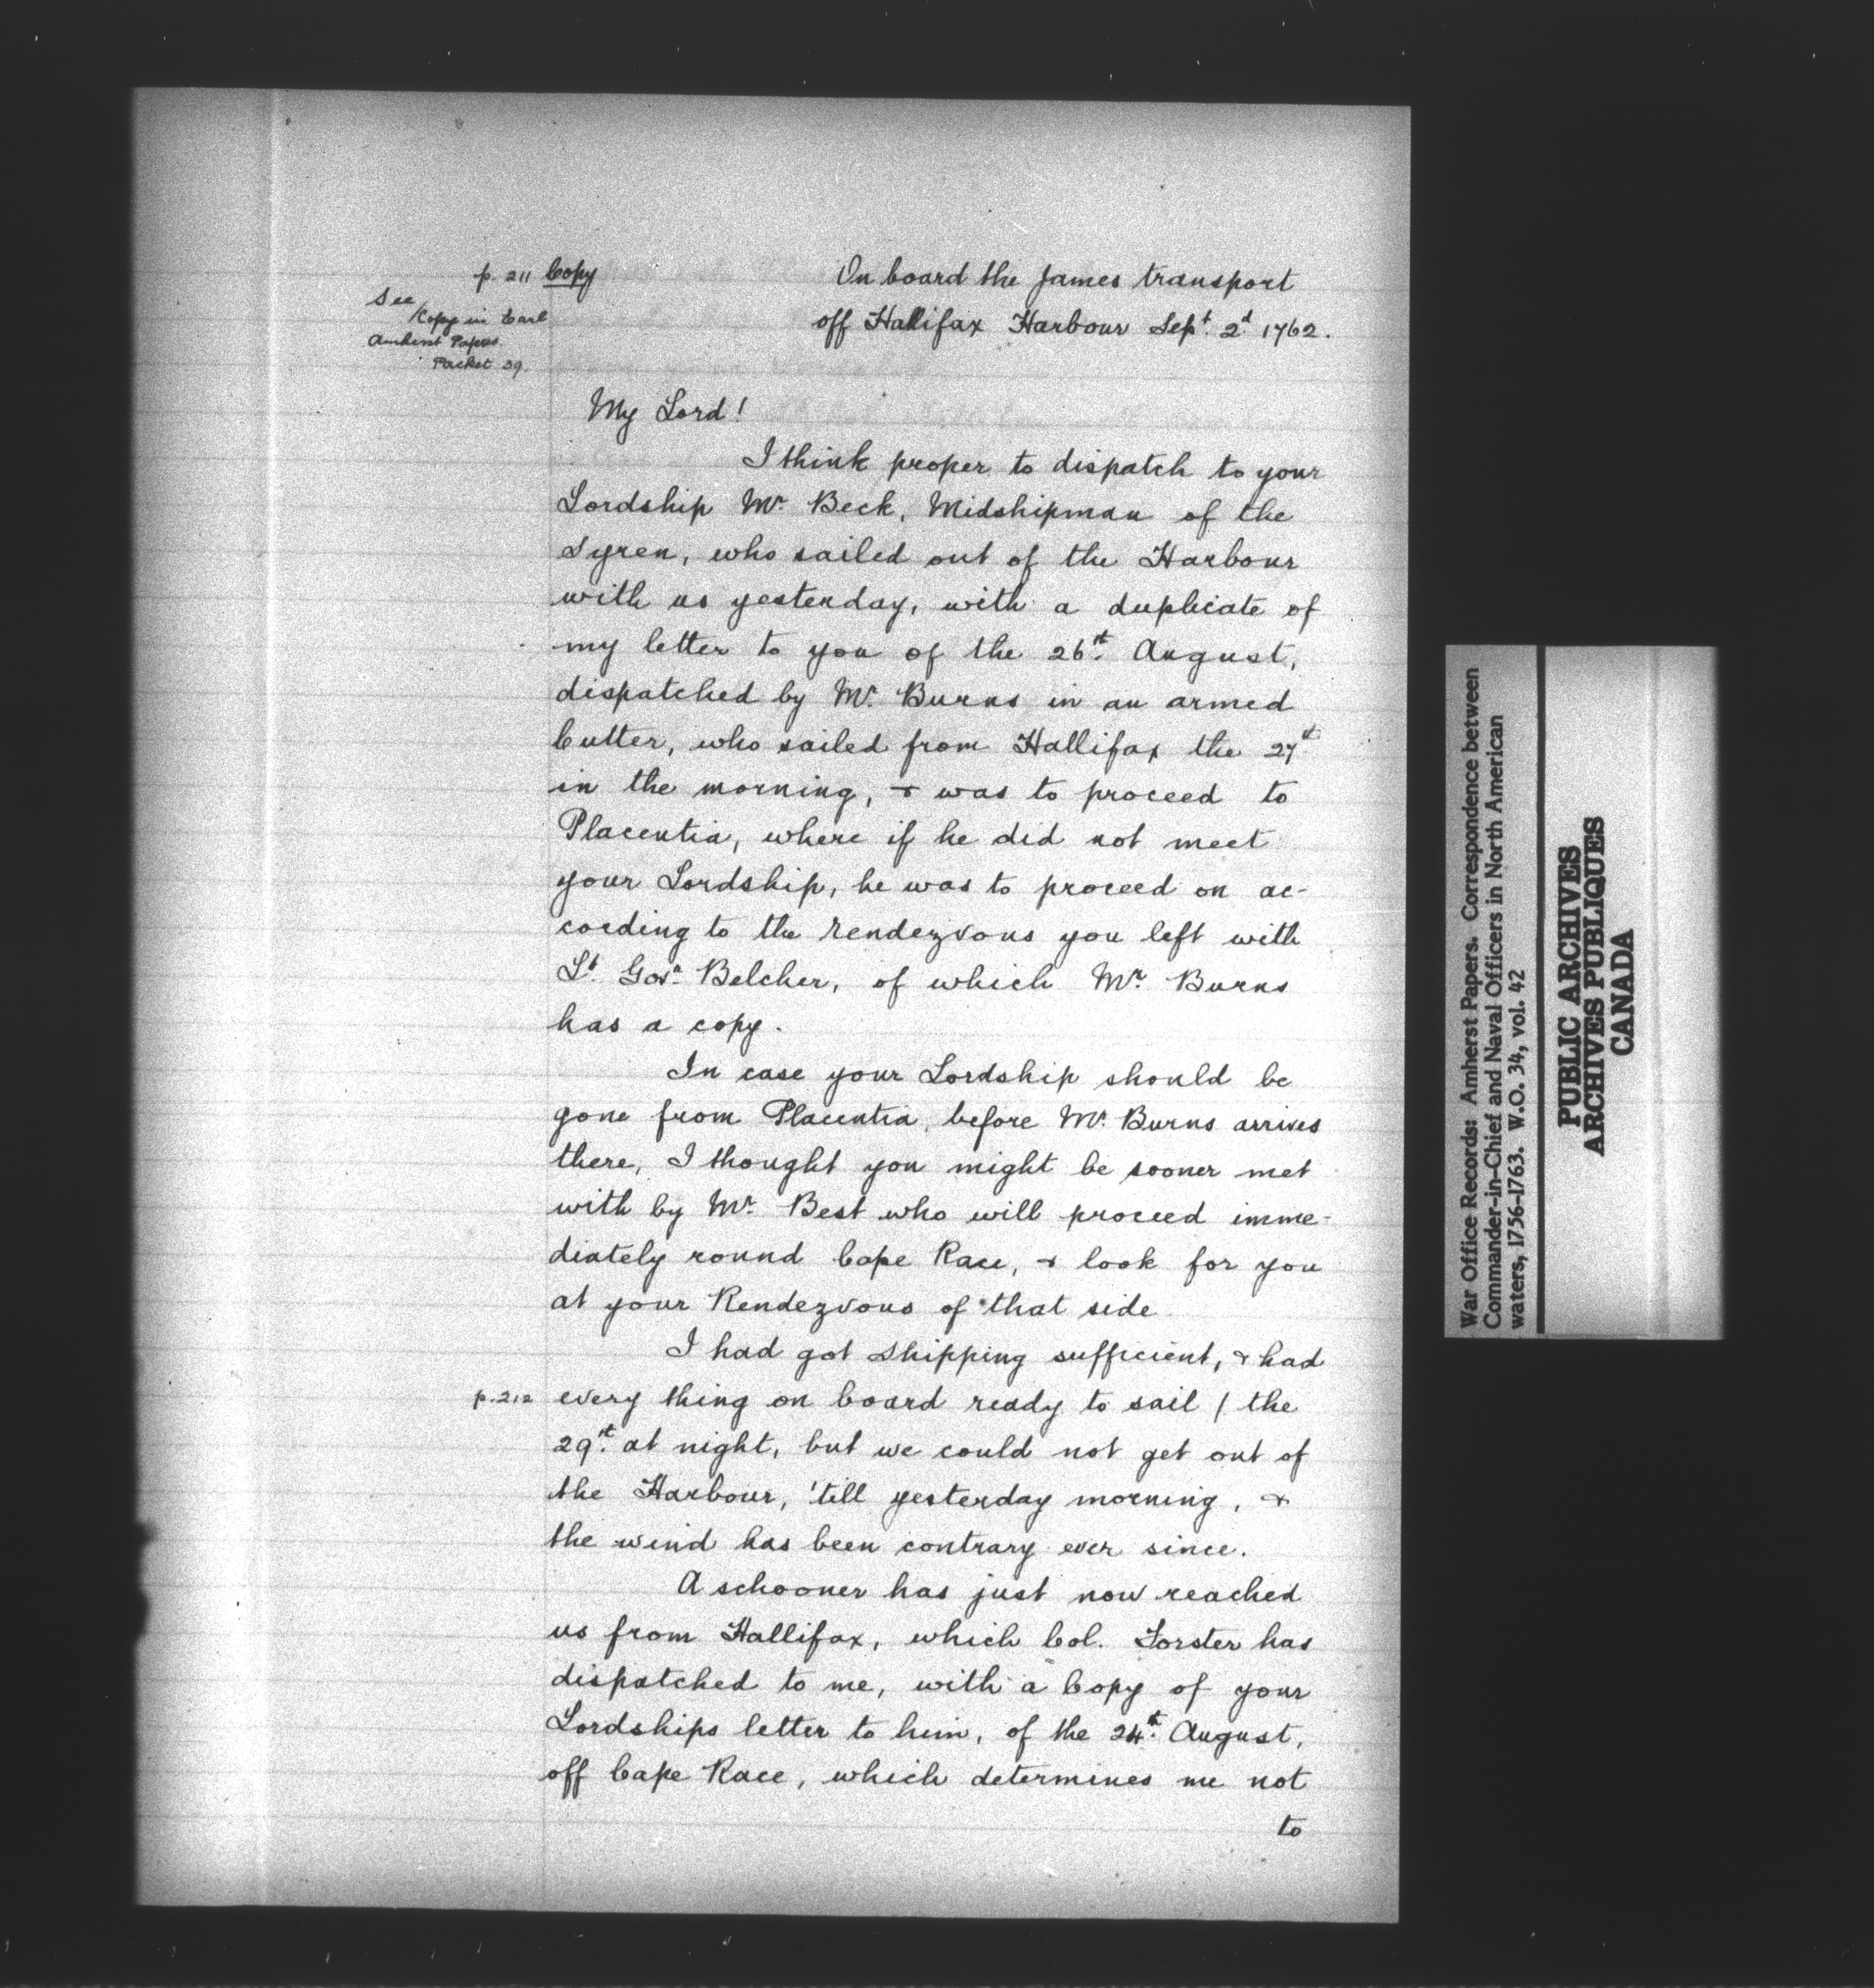 p. 211 Copy
See
Copy in Earl
Amherst Papers.
Packet 39.
On board the James transport
off Hallifax Harbour Sept. 2d 1762.
My Lord!
I think proper to dispatch to your
Lordship Mr. Beck, Midshipman of the
Syren, who sailed out of the Harbour
with us yesterday, with a duplicate of
my letter to you of the 26th. August,
dispatched by Mr. Burns in an armed
Cutter, who sailed from Hallifax the 27th.
in the morning, & was to proceed to
Placentia, where if he did not meet
your Lordship, he was to proceed on ac-
cording to the rendezvous you left with
Lt. Govr. Belcher, of which Mr. Burns
has a copy.
In case your Lordship should be
gone from Placentia, before Mr. Burns arrives
there, I thought you might be sooner met
with by Mr. Best who will proceed imme-
diately round Cape Race, & look for you
at your Rendezvous of that side
I had got Shipping sufficient, & had
p. 212 every thing on board ready to sail / the
29th. at night, but we could not get out of
the Harbour, 'till yesterday morning, &
the wind has been contrary ever since.
A schooner has just now reached
us from Hallifax, which Col. Forster has
dispatched to me, with a Copy of your
Lordships letter to him, of the 24th. August,
off Cape Race, which determines me not
to
War Office Records: Amherst Papers. Correspondence between
Commander-in-Chief and Naval Officers in North American
waters, 1756-1763. W.O. 34, vol. 42
PUBLIC ARCHIVES
ARCHIVES PUBLIQUES
CANADA